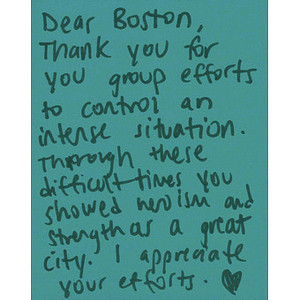 Dear Boston,
Thank you for
you group efforts
to control an
intense situation.
Through these
difficult times you
showed heroism and
strength as a great
city. I appreciate
your efforts. ♥